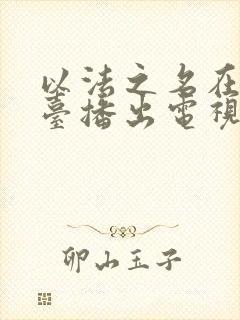 以法之名在
臺播出電視
卯山玉子